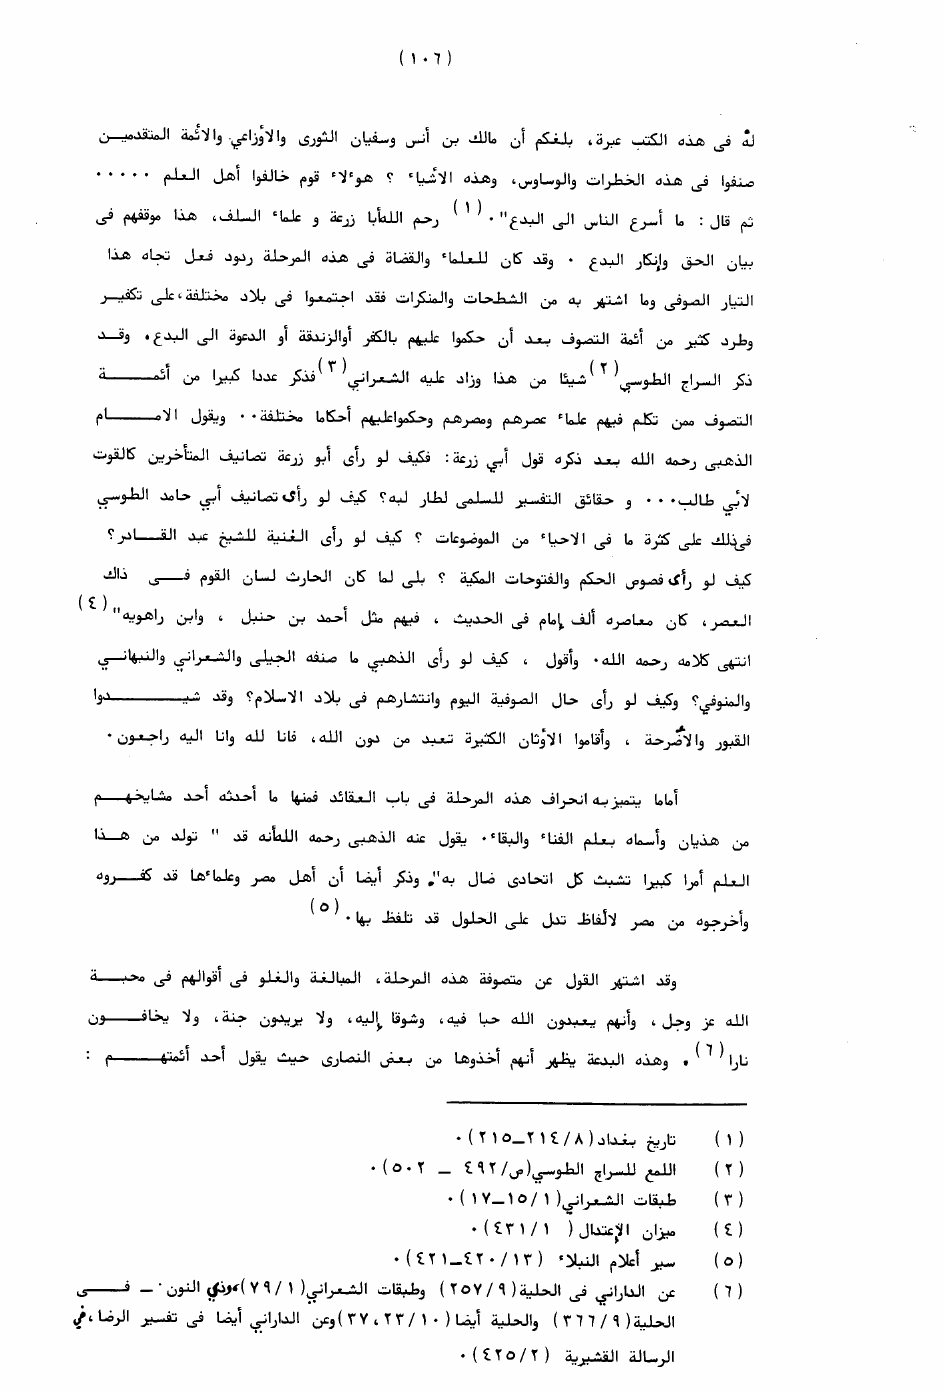 (١٠٦)
له فى هذه الكتب عبرة، بلغكم أن مالك بن أنس وسفيان الثورى والأوزاعي والائمة المتقدميـــن
صنفوا فى هذه الخطرات والوساوس، وهذه الأشياء ؟ هؤلاء قوم خالفوا أهل العلم ٠٠٠٠٠
ثم قال : ما أسرع الناس الى البدع"٠(١) رحم الله أبا زرعة و علماء السلف، هذا موقفهم فى
بيان الحق وإنكار البدع ٠ وقد كان للعلماء والقضاة فى هذه المرحلة ردود فعل تجاه هذا
التيار الصوفى وما اشتهر به من الشطحات والمنكرات فقد اجتمعوا فى بلاد مختلفة،على تكفيـــر
وطرد كثير من أئمة التصوف بعد أن حكموا عليهم بالكفر أوالزندقة أو الدعوة الى البدع٠ وقــد
ذكر السراج الطوسي(٢)شيئا من هذا وزاد عليه الشعراني(٣)فذكر عددا كبيرا من أئمـــــة
التصوف ممن تكلم فيهم علماء عصرهم ومصرهم وحكمواعليهم أحكاما مختلفة٠٠ ويقول الامــــــام
الذهبى رحمه الله بعد ذكره قول أبي زرعة: فكيف لو رأى أبو زرعة تصانيف المتأخرين كالقوت
لأبي طالب٠٠٠ و حقائق التفسير للسلمى لطار لبه؟ كيف لو رأى تصانيف أبي حامد الطوسي
فىذلك على كثرة ما فى الاحياء من الموضوعات ؟ كيف لو رأى الغنية للشيخ عبد القـــادر؟
كيف لو رأى فصوص الحكم والفتوحات المكية ؟ بلى لما كان الحارث لسان القوم فـــى ذاك
العصر، كان معاصره ألف إمام فى الحديث ، فيهم مثل أحمد بن حنبل ، وابن راهويه"(٤)
انتهى كلامه رحمه الله٠ وأقول ، كيف لو رأى الذهبي ما صنفه الجيلى والشعراني والنبهانـــي
والمنوفي؟ وكيف لو رأى حال الصوفية اليوم وانتشارهم فى بلاد الاسلام؟ وقد شيـــــــدوا
القبور والأضرحة ، وأقاموا الأوثان الكثيرة تعبد من دون الله، فانا لله وانا اليه راجعون٠
أماما يتميزبه انحراف هذه المرحلة فى باب العقائد فمنها ما أحدثه أحد مشايخهـــم
من هذيان وأسماه بعلم الفناء والبقاء٠ يقول عنه الذهبى رحمه الله أنه قد " تولد من هــذا
العلم أمرا كبيرا تشبث كل اتحادى ضال به"٠ وذكر أيضا أن أهل مصر وعلماءها قد كفـــروه
وأخرجوه من مصر لألفاظ تدل على الحلول قد تلفظ بها٠(٥)
وقد اشتهر القول عن متصوفة هذه المرحلة، المبالغة والغلو فى أقوالهم فى محبـــة
الله عز وجل، وأنهم يعبدون الله حبا فيه، وشوقا إليه، ولا يريدون جنة، ولا يخافــــون
نارا(٦)٠ وهذه البدعة يظهر أنهم أخذوها من بعض النصارى حيث يقول أحد أئمتهــــم :
(١) تاريخ بغداد(٨/ ٢١٤ــ٢١٥)٠
(٢) اللمع للسراج الطوسي(ص/٤٩٢ ــ ٥٠٢)٠
(٣) طبقات الشعراني(١/ ١٥ــ١٧)٠
(٤) ميزان الإعتدال( ١/ ٤٣١)٠
(٥) سير أعلام النبلاء (١٣/ ٤٢٠ــ٤٢١)٠
(٦) عن الداراني فى الحلية(٩/ ٢٥٧) وطبقات الشعراني(١/ ٧٩)،وذي النون٠ ــ فـــــى
الحلية(٩/ ٣٦٦) والحلية أيضا(١٠/ ٢٣،٣٧)وعن الداراني أيضا فى تفسير الرضا،في
الرسالة القشيرية (٢/ ٤٢٥)٠